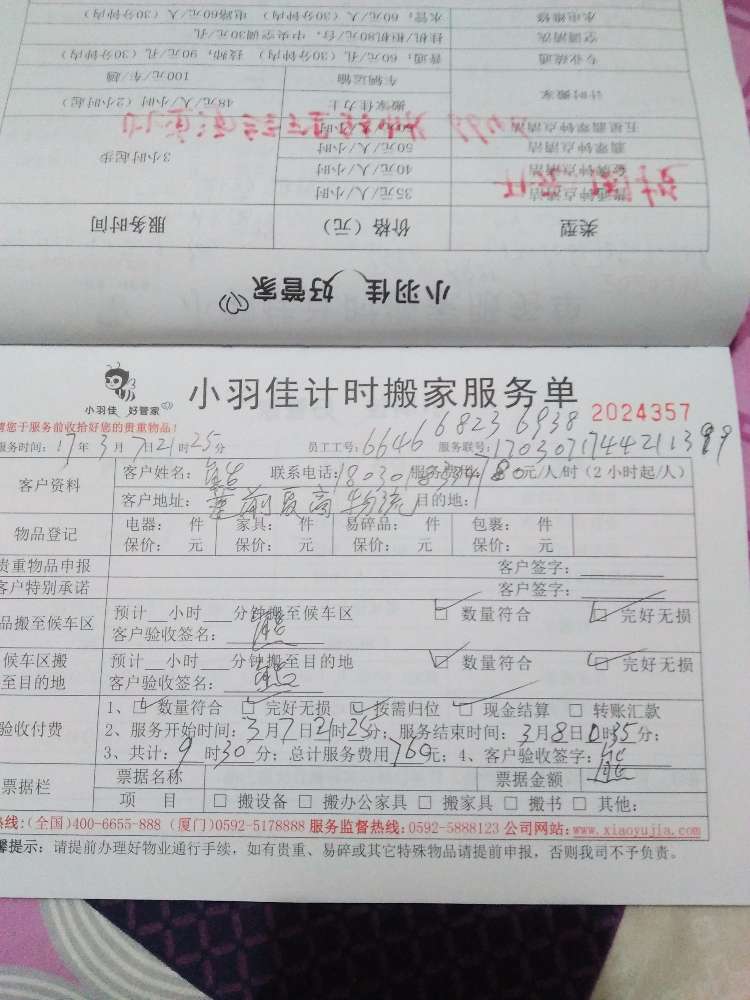 小羽佳 好管家
类型 价格(元) 服务时间
钟点清洁 35元/人/小时 3小时起步
钟点清洁 40元/人/小时
翡翠钟点清洁 50元/人/小时
五星翡翠钟点清洁
计时搬家 搬家佳力士 48元/人/小时(2小时起)
车辆运输 100元/车/趟
专业疏通 普通:60元/孔(30分钟内) 技师:90元/孔(30分钟内)
空调清洗 挂机/柜机80元/台,中央空调30元/孔
水电维修 水管:60元/人(30分钟内) 电路60元/人(30分钟内)
小羽佳 好管家
小羽佳计时搬家服务单 2024357
请您于服务前收拾好您的贵重物品!
服务时间:17年3月7日21时25分 员工工号:6646 6823 6938 服务联号:
客户资料 客户姓名: 联系电话: 服务费用:80元/人/时(2小时起/人)
客户地址: 物流 目的地:
物品登记 电器: 件 家具: 件 易碎品: 件 包裹: 件
保价: 元 保价: 元 保价: 元 保价: 元
贵重物品申报 客户签字:
客户特别承诺 客户签字:
品搬至候车区 预计__小时__分钟搬至候车区 数量符合 完好无损
客户验收签名:
候车区搬至目的地 预计__小时__分钟搬至目的地 数量符合 完好无损
客户验收签名:
验收付费 1、数量符合 完好无损 按需归位 现金结算 转账汇款
2、服务开始时间:3月7日21时25分;服务结束时间:3月8日0时35分;
3、共计:9时30分;总计服务费用760元;4、客户验收签字:
票据栏 票据名称 票据金额
项 目 搬设备 搬办公家具 搬家具 搬书 其他:
热线:(全国)400-6655-888 (厦门)0592-5178888 服务监督热线:0592-5888123 公司网站:www.xiaoyujia.com
馨提示:请提前办理好物业通行手续,如有贵重、易碎或其它特殊物品请提前申报,否则我司不予负责。